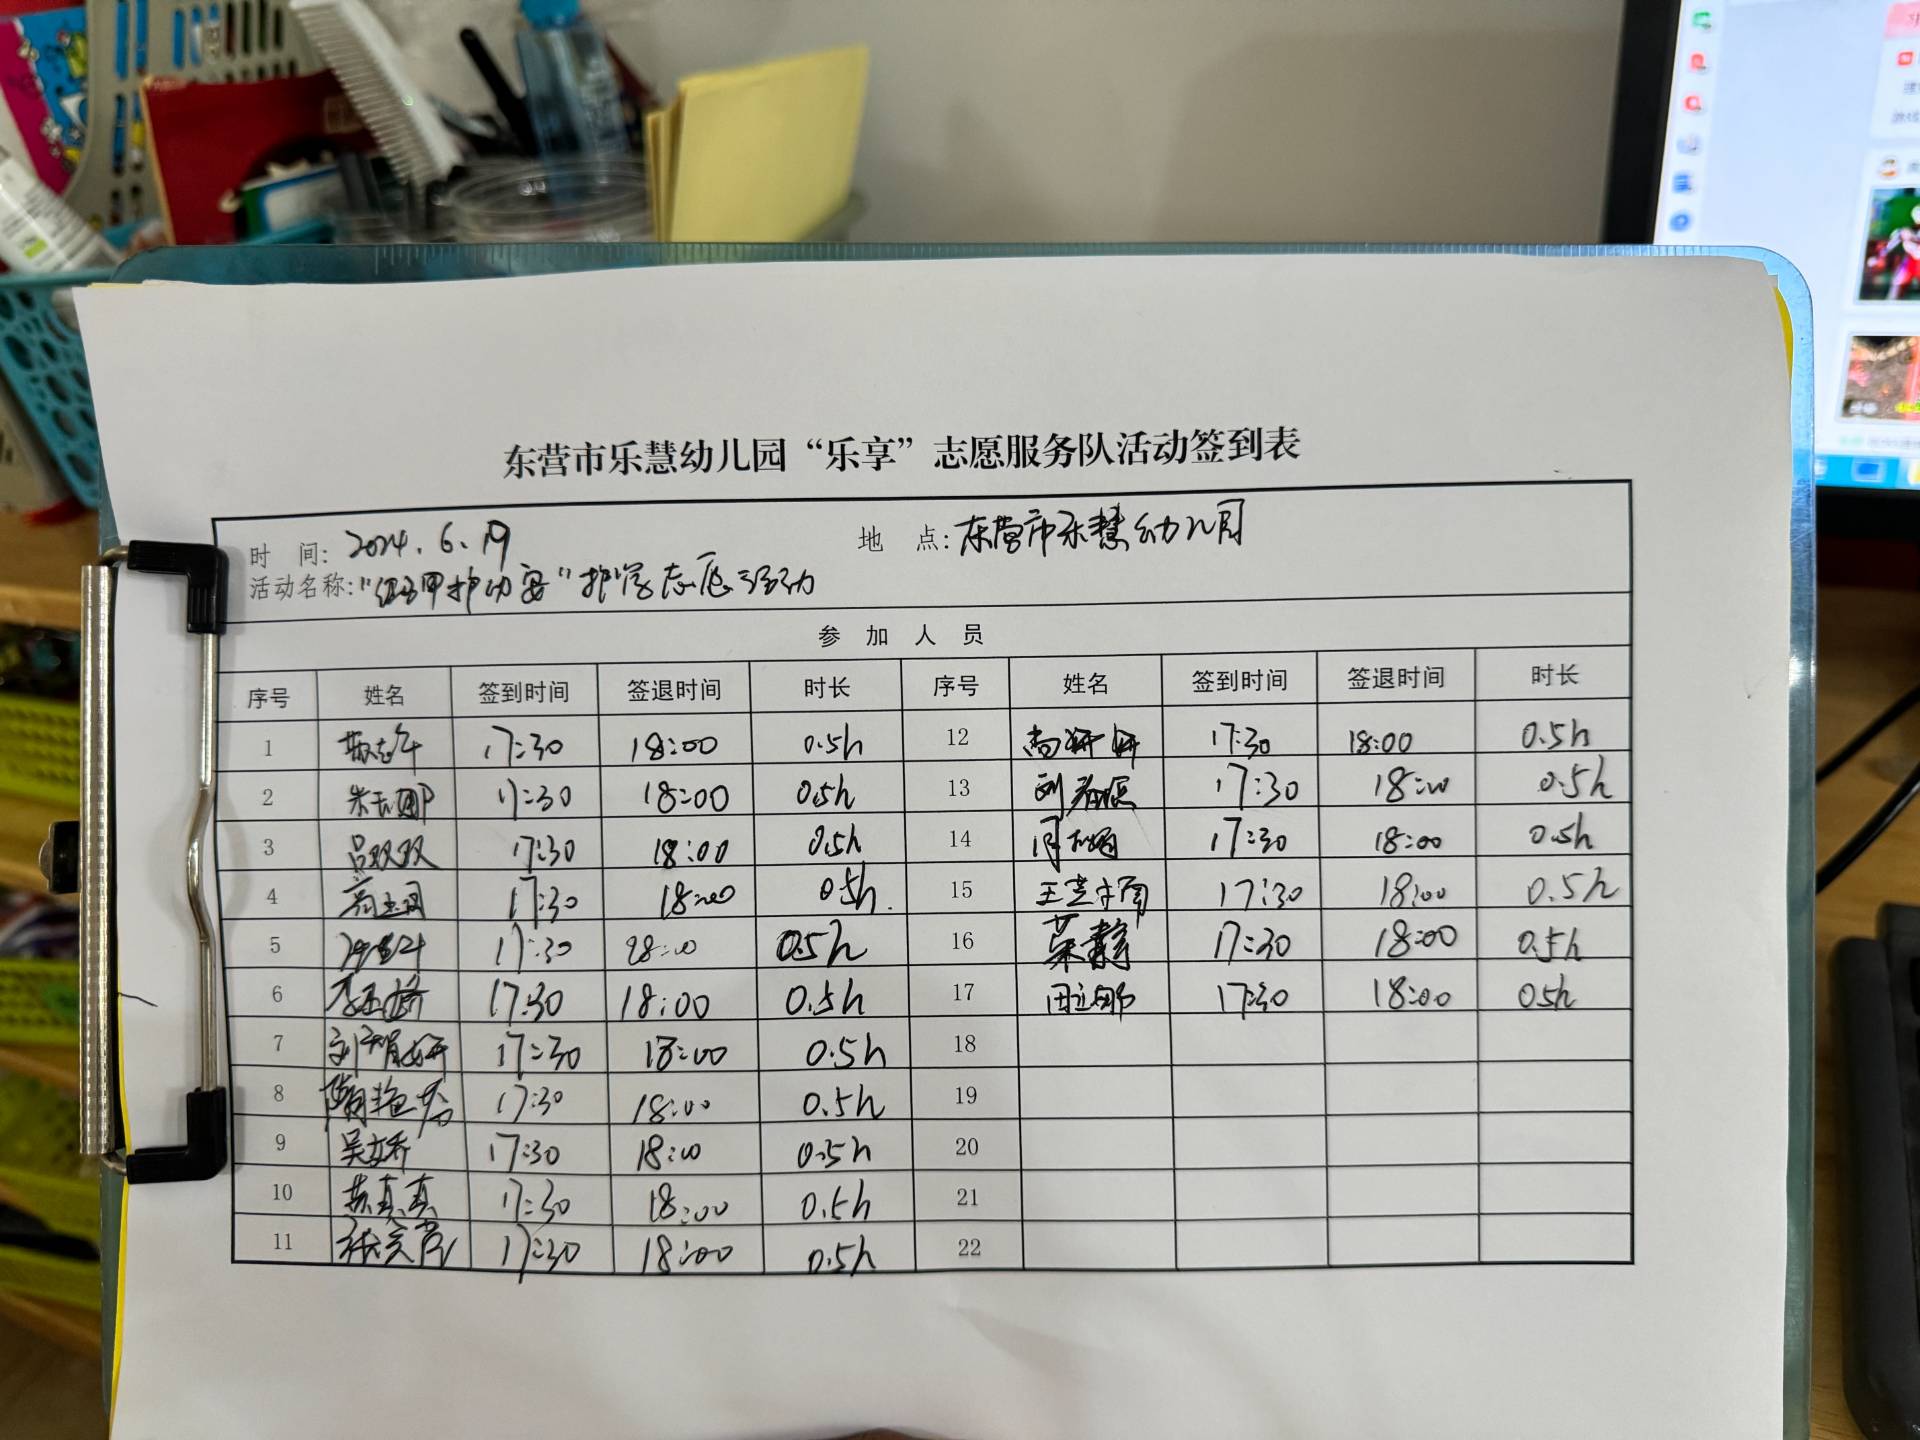 东营市乐慧幼儿园“乐享”志愿服务队活动签到表
时 间: 2024.6.19 地 点: 东营市乐慧幼儿园
活动名称: 护学志愿活动
参 加 人 员
序号 姓名 签到时间 签退时间 时长 序号 姓名 签到时间 签退时间 时长
1 17:30 18:00 0.5h 12 尚妍妍 17:30 18:00 0.5h
2 17:30 18:00 0.5h 13 17:30 18:00 0.5h
3 吕双双 17:30 18:00 0.5h 14 17:30 18:00 0.5h
4 17:30 18:00 0.5h. 15 17:30 18:00 0.5h
5 17:30 18:00 0.5h 16 17:30 18:00 0.5h
6 17:30 18:00 0.5h 17 17:30 18:00 0.5h
7 17:30 18:00 0.5h 18
8 17:30 18:00 0.5h 19
9 17:30 18:00 0.5h 20
10 苏真真 17:30 18:00 0.5h 21
11 17:30 18:00 0.5h 22